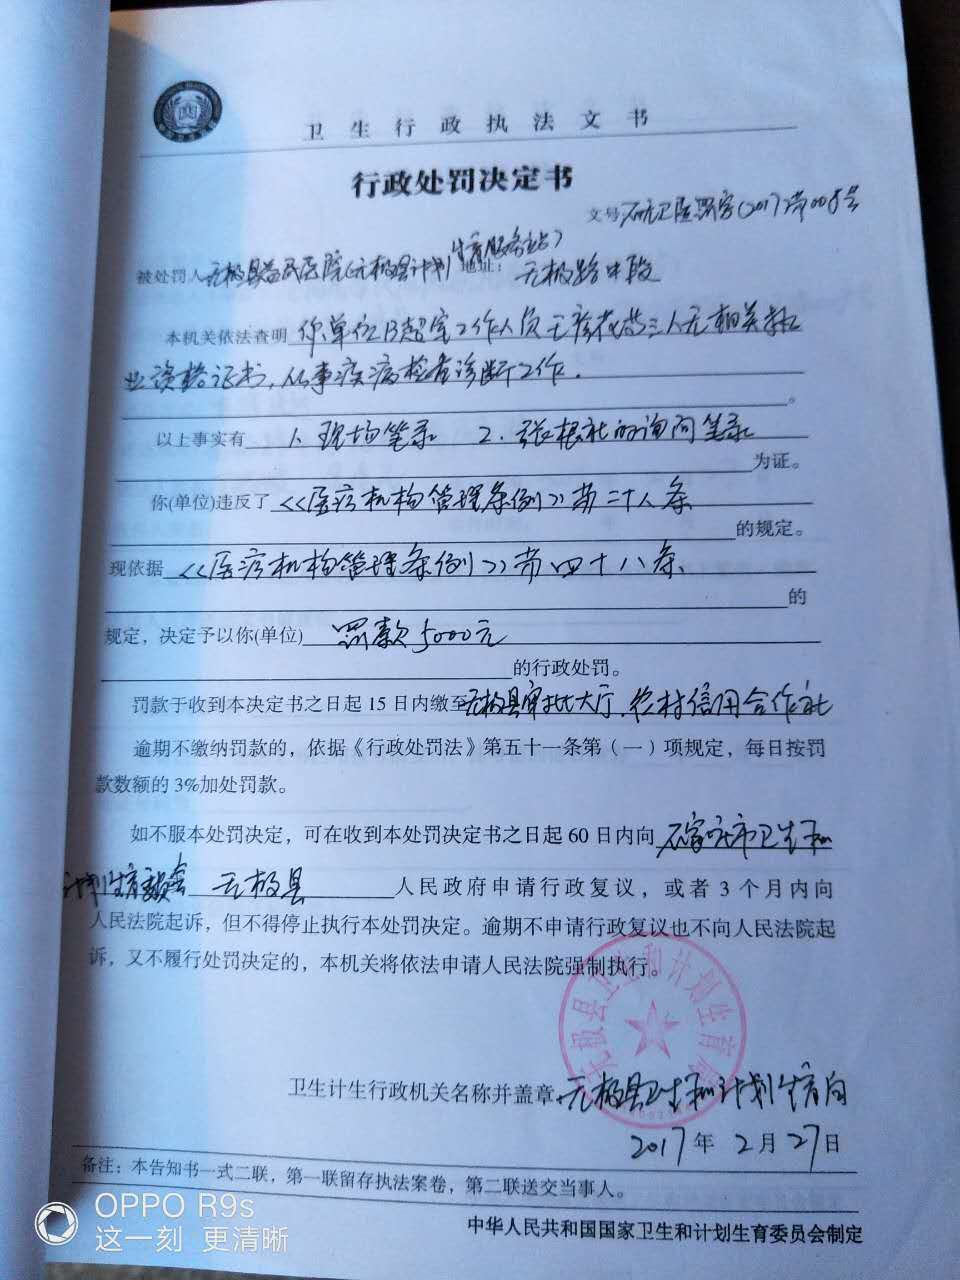 卫生行政执法文书
行政处罚决定书
文号 石无卫医罚字(2017)第008号
生育服务站)
被处罚人 无极县益民医院(无极县计划 地址: 无极路中段
本机关依法查明 你单位B超室工作人员 三人无相关执
业资格证书,从事疾病检查诊断工作.
。
以上事实有 1、现场笔录 2、张根社的询问笔录
为证。
你(单位)违反了《医疗机构管理条例》第二十八条
的规定。
现依据《医疗机构管理条例》第四十八条
的
规定,决定予以你(单位) 罚款5000元
的行政处罚。
罚款于收到本决定书之日起15日内缴至无极县审批大厅、农村信用合作社
逾期不缴纳罚款的,依据《行政处罚法》第五十一条第(一)项规定,每日按罚
款数额的3%加处罚款。
如不服本处罚决定,可在收到本处罚决定书之日起60日内向 石家庄市卫生和
计划生育委员会 无极县 人民政府申请行政复议,或者3个月内向
人民法院起诉,但不得停止执行本处罚决定。逾期不申请行政复议也不向人民法院起
诉,又不履行处罚决定的,本机关将依法申请人民法院强制执行。
无极县卫生和计划生育局
卫生计生行政机关名称并盖章 无极县卫生和计划生育局
2017年2月27日
备注:本告知书一式二联,第一联留存执法案卷,第二联送交当事人。
中华人民共和国国家卫生和计划生育委员会制定
OPPO R9s
这一刻 更清晰